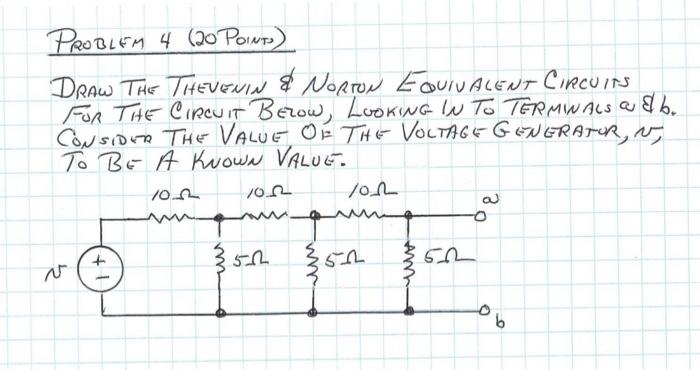 PROBLEM 4 (20 POINTS)
DRAW THE THEVENIN & NORTON EQUIVALENT CIRCUITS
FOR THE CIRCUIT BELOW, LOOKING IN TO TERMINALS a & b.
CONSIDER THE VALUE OF THE VOLTAGE GENERATOR, v,
TO BE A KNOWN VALUE.
10Ω 10Ω 10Ω a
v + - 5Ω 5Ω 5Ω
b